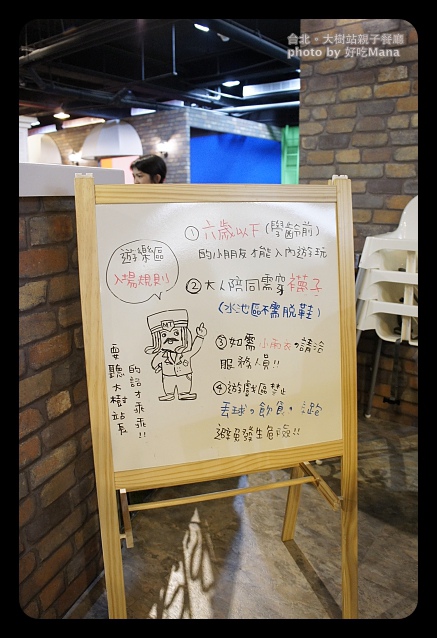 台北。大樹站親子餐廳
photo by 好吃Mana
遊樂區
入場規則
①六歲以下(學齡前)
的小朋友才能入內遊玩
②大人陪同需穿襪子
(水池區不需脫鞋)
③如需小雨衣，請洽
服務人員!!
④遊戲區禁止
丟球，飲食，
避免發生危險!!
要聽大樹站長
的話才乖乖!!